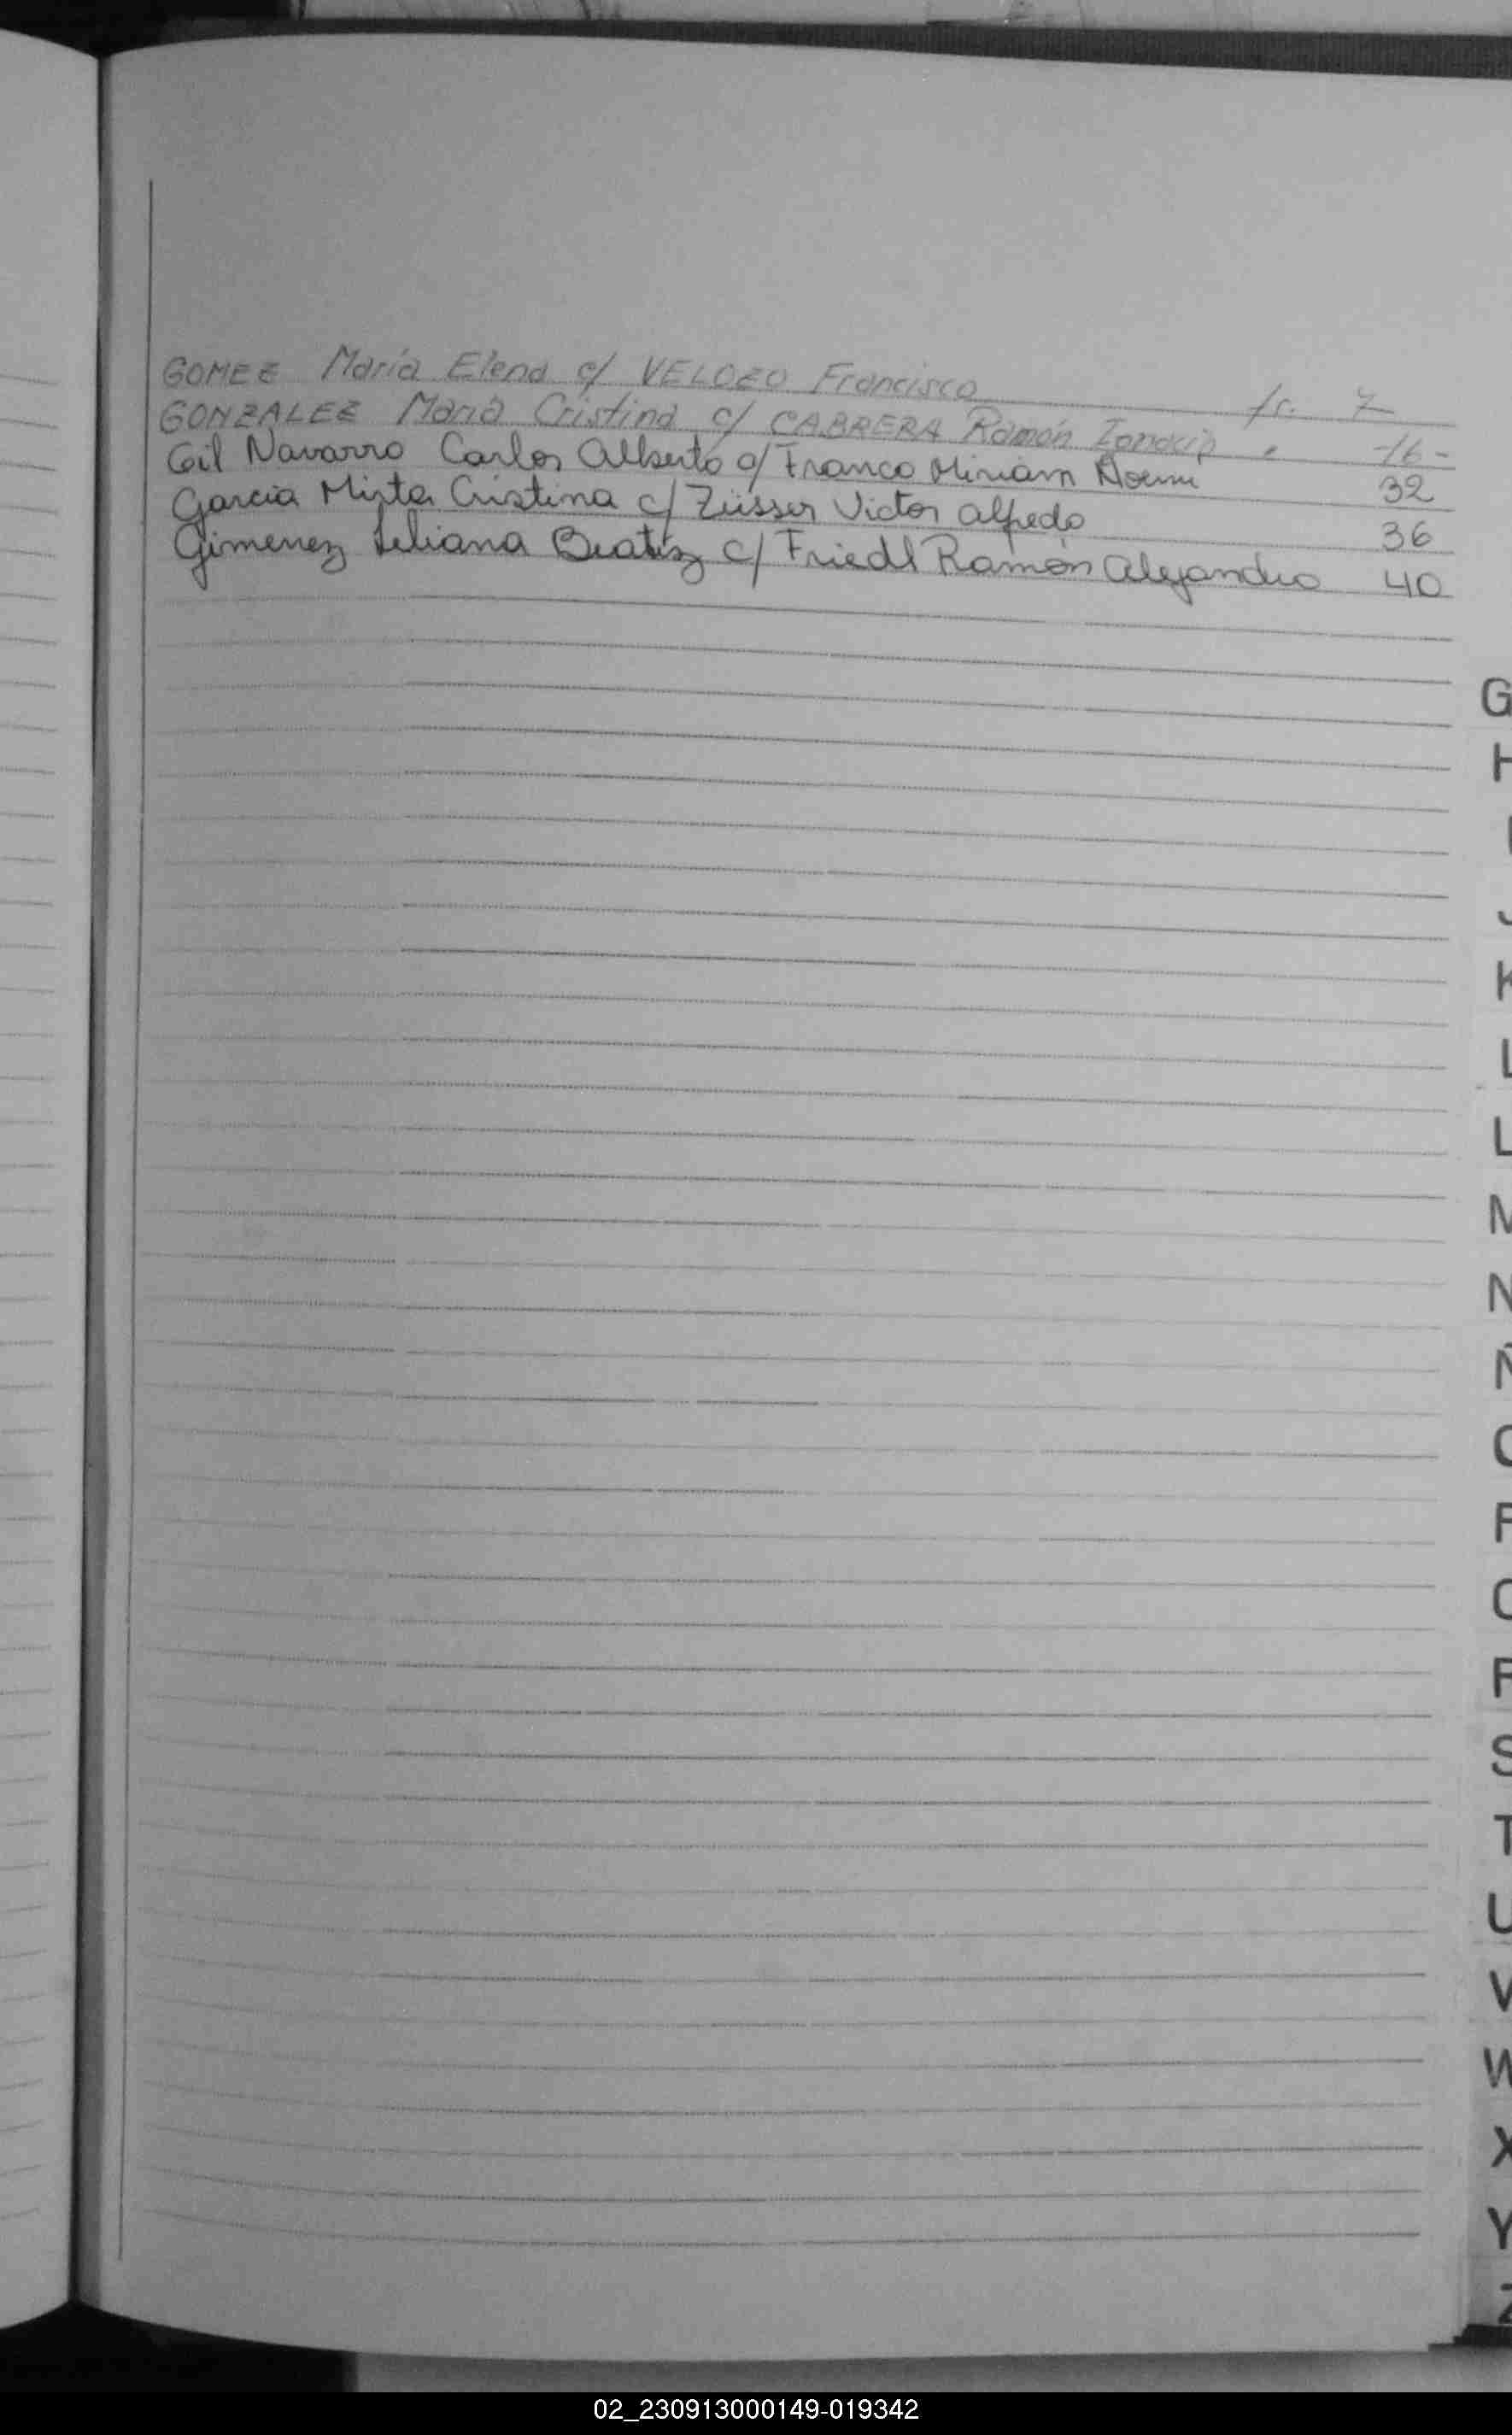 GOMEZ María Elena c/ VELOZO Francisco fr. 7
GONZALEZ María Cristina c/ CABRERA Ramón Ignacio " -16-
Gil Navarro Carlos Alberto c/ Franco Miriam Noemi 32
Garcia Mirta Cristina c/ Züsser Victor Alfredo 36
Gimenez Liliana Beatriz c/ Friedl Ramón Alejandro 40
G
H
I
J
K
L
L
M
N
Ñ
O
P
Q
R
S
T
U
V
W
X
Y
Z
02_230913000149-019342